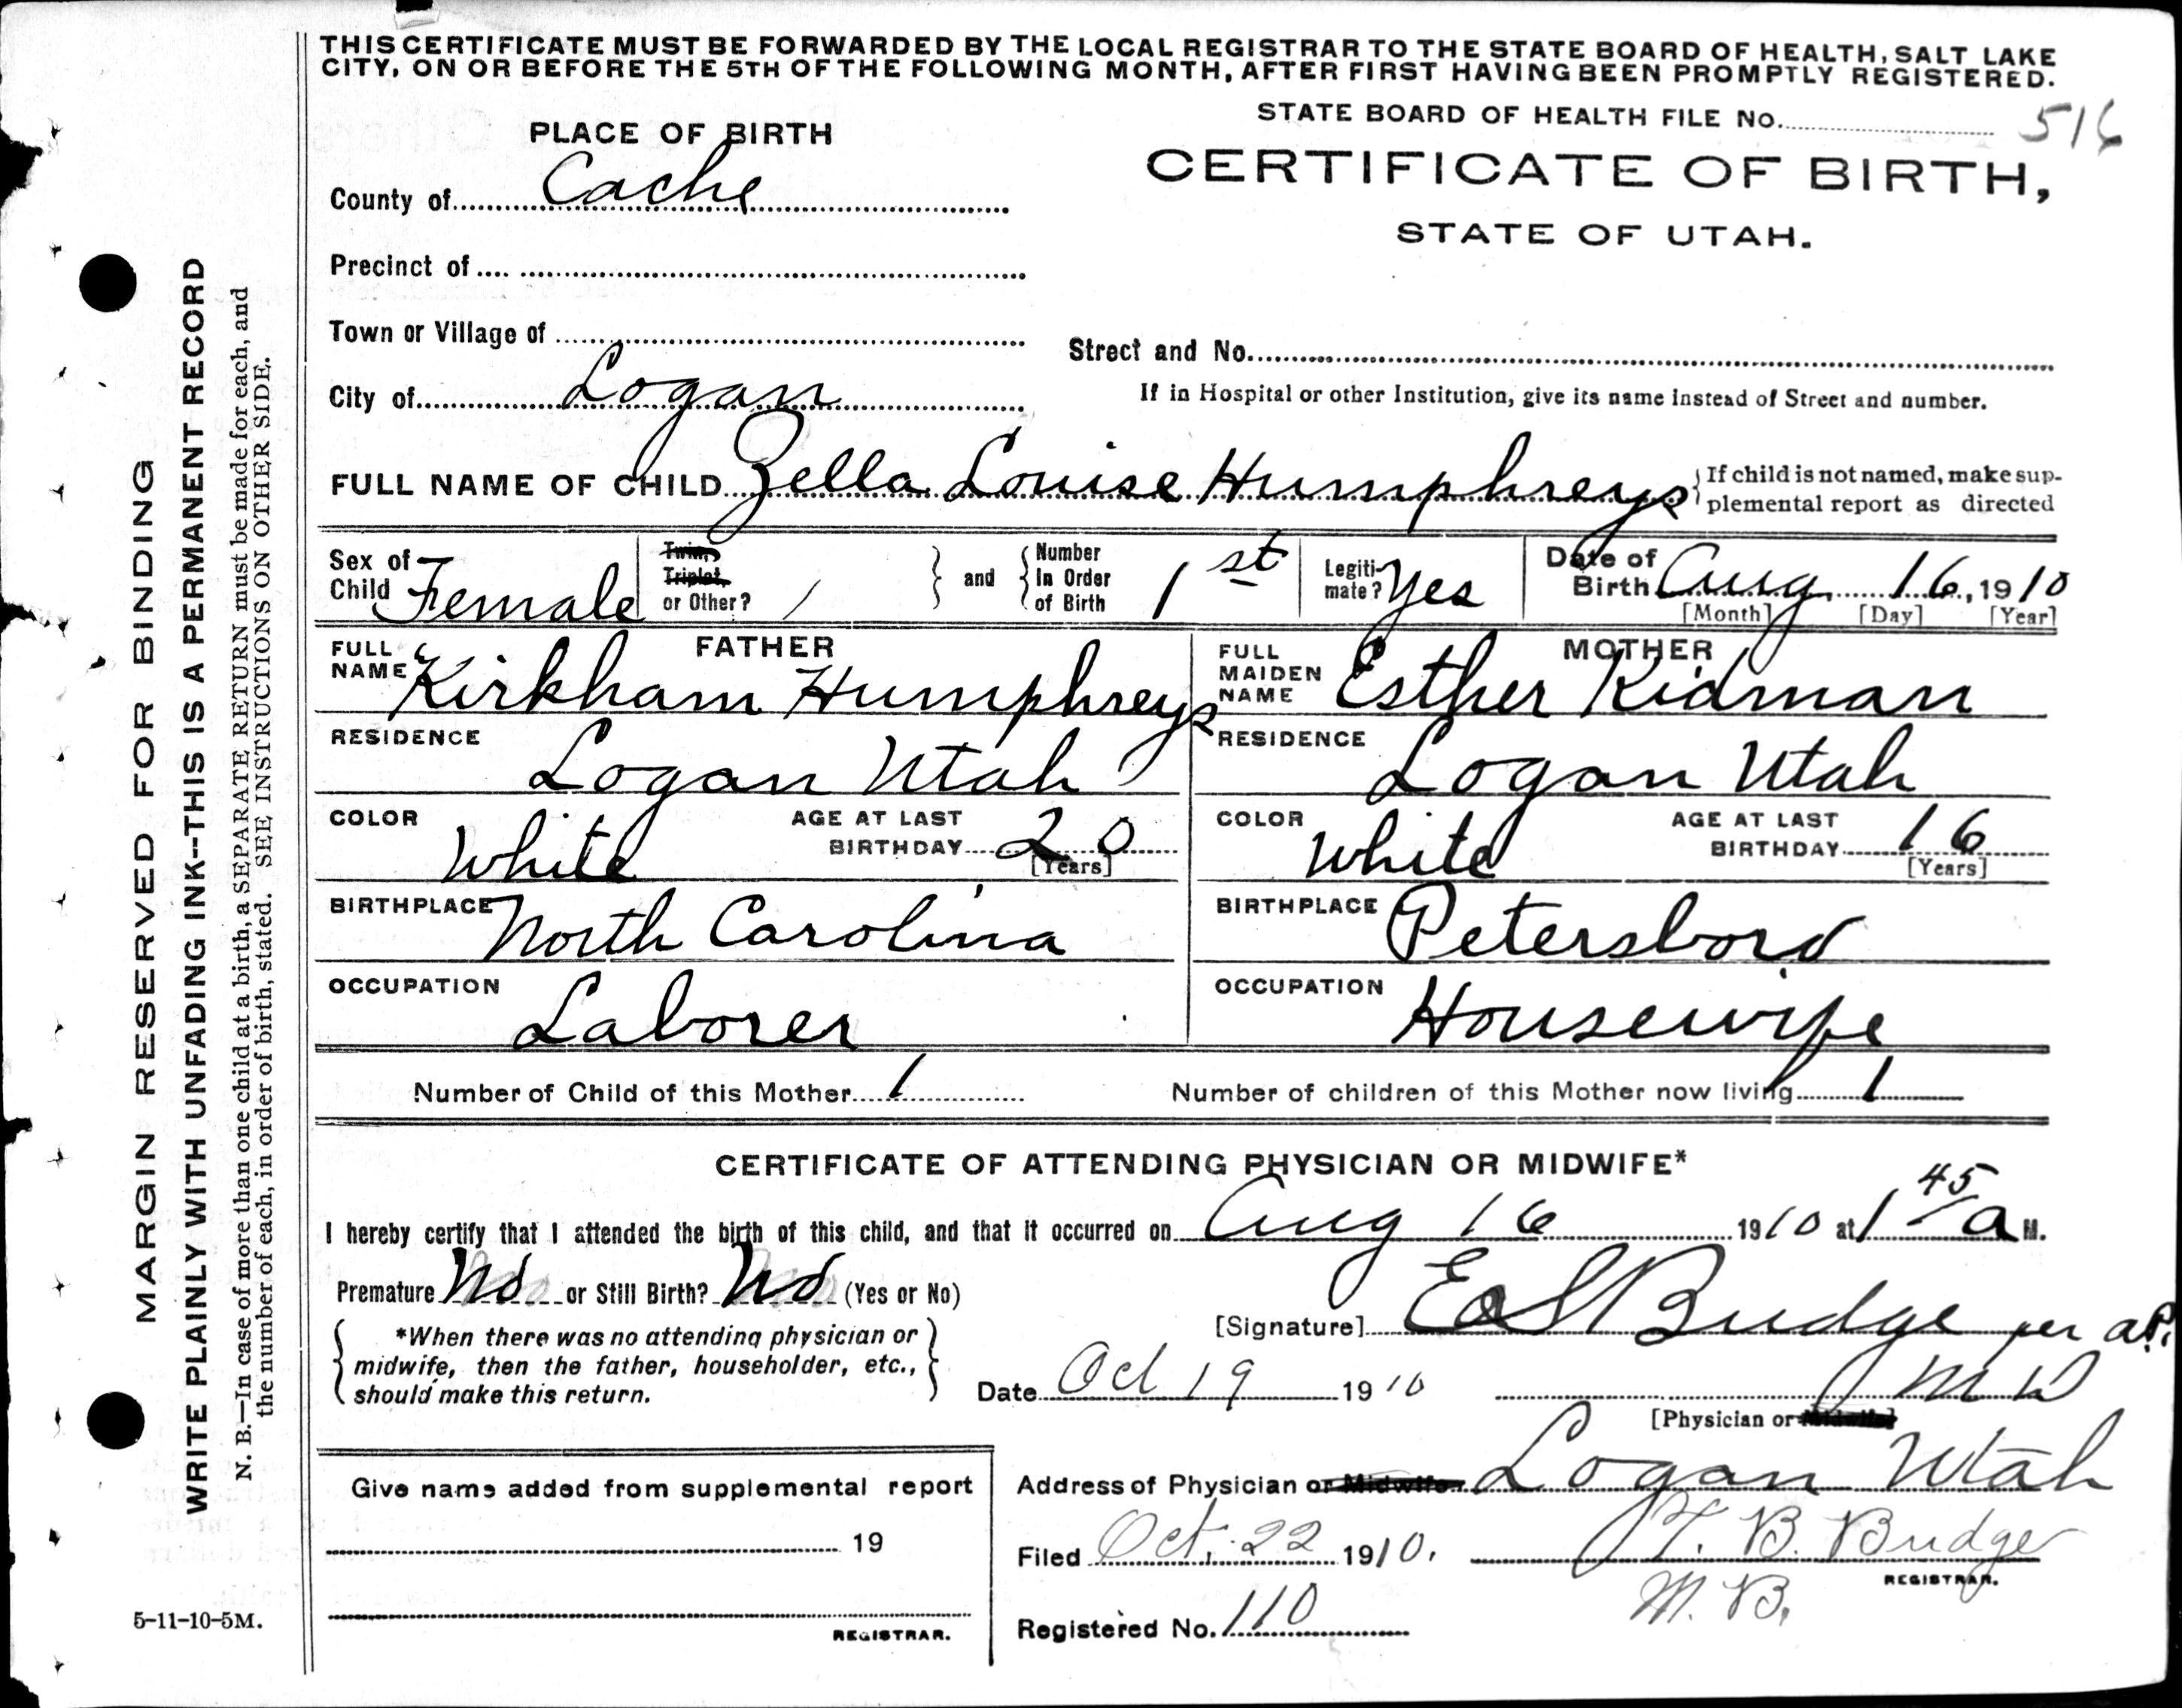 THIS CERTIFICATE MUST BE FORWARDED BY THE LOCAL REGISTRAR TO THE STATE BOARD OF HEALTH, SALT LAKE
CITY, ON OR BEFORE THE 5TH OF THE FOLLOWING MONTH, AFTER FIRST HAVING BEEN PROMPTLY REGISTERED.
STATE BOARD OF HEALTH FILE No. 516
PLACE OF BIRTH
CERTIFICATE OF BIRTH,
STATE OF UTAH.
County of Cache
Precinct of
Town or Village of
Street and No.
City of Logan
If in Hospital or other Institution, give its name instead of Street and number.
FULL NAME OF CHILD Zella Louise Humphreys
If child is not named, make sup-
plemental report as directed
Sex of Child Female
Twin, Triplet, or Other? /
and
Number in Order of Birth 1st
Legiti-mate? Yes
Date of Birth Aug 16, 1910
[Month] [Day] [Year]
FATHER
FULL NAME Kirkham Humphreys
MOTHER
FULL MAIDEN NAME Esther Kidman
RESIDENCE Logan Utah
RESIDENCE Logan Utah
COLOR White AGE AT LAST BIRTHDAY 20 [Years]
COLOR White AGE AT LAST BIRTHDAY 16 [Years]
BIRTHPLACE North Carolina
BIRTHPLACE Petersboro
OCCUPATION Laborer
OCCUPATION Housewife
Number of Child of this Mother 1
Number of children of this Mother now living 1
CERTIFICATE OF ATTENDING PHYSICIAN OR MIDWIFE*
I hereby certify that I attended the birth of this child, and that it occurred on Aug 16 1910 at 1 45 a M.
Premature No or Still Birth? No (Yes or No)
*When there was no attending physician or
midwife, then the father, householder, etc.,
should make this return.
[Signature] Budge per
Date Oct 19 1910
[Physician or Midwife]
Give name added from supplemental report
19
REGISTRAR.
Address of Physician or Midwife Logan Utah
Filed Oct. 22 1910. T. B. Budge
REGISTRAR.
M. B.
Registered No. 110
MARGIN RESERVED FOR BINDING
WRITE PLAINLY WITH UNFADING INK--THIS IS A PERMANENT RECORD
N. B.—In case of more than one child at a birth, a SEPARATE RETURN must be made for each, and
the number of each, in order of birth, stated. SEE INSTRUCTIONS ON OTHER SIDE.
5-11-10-5M.